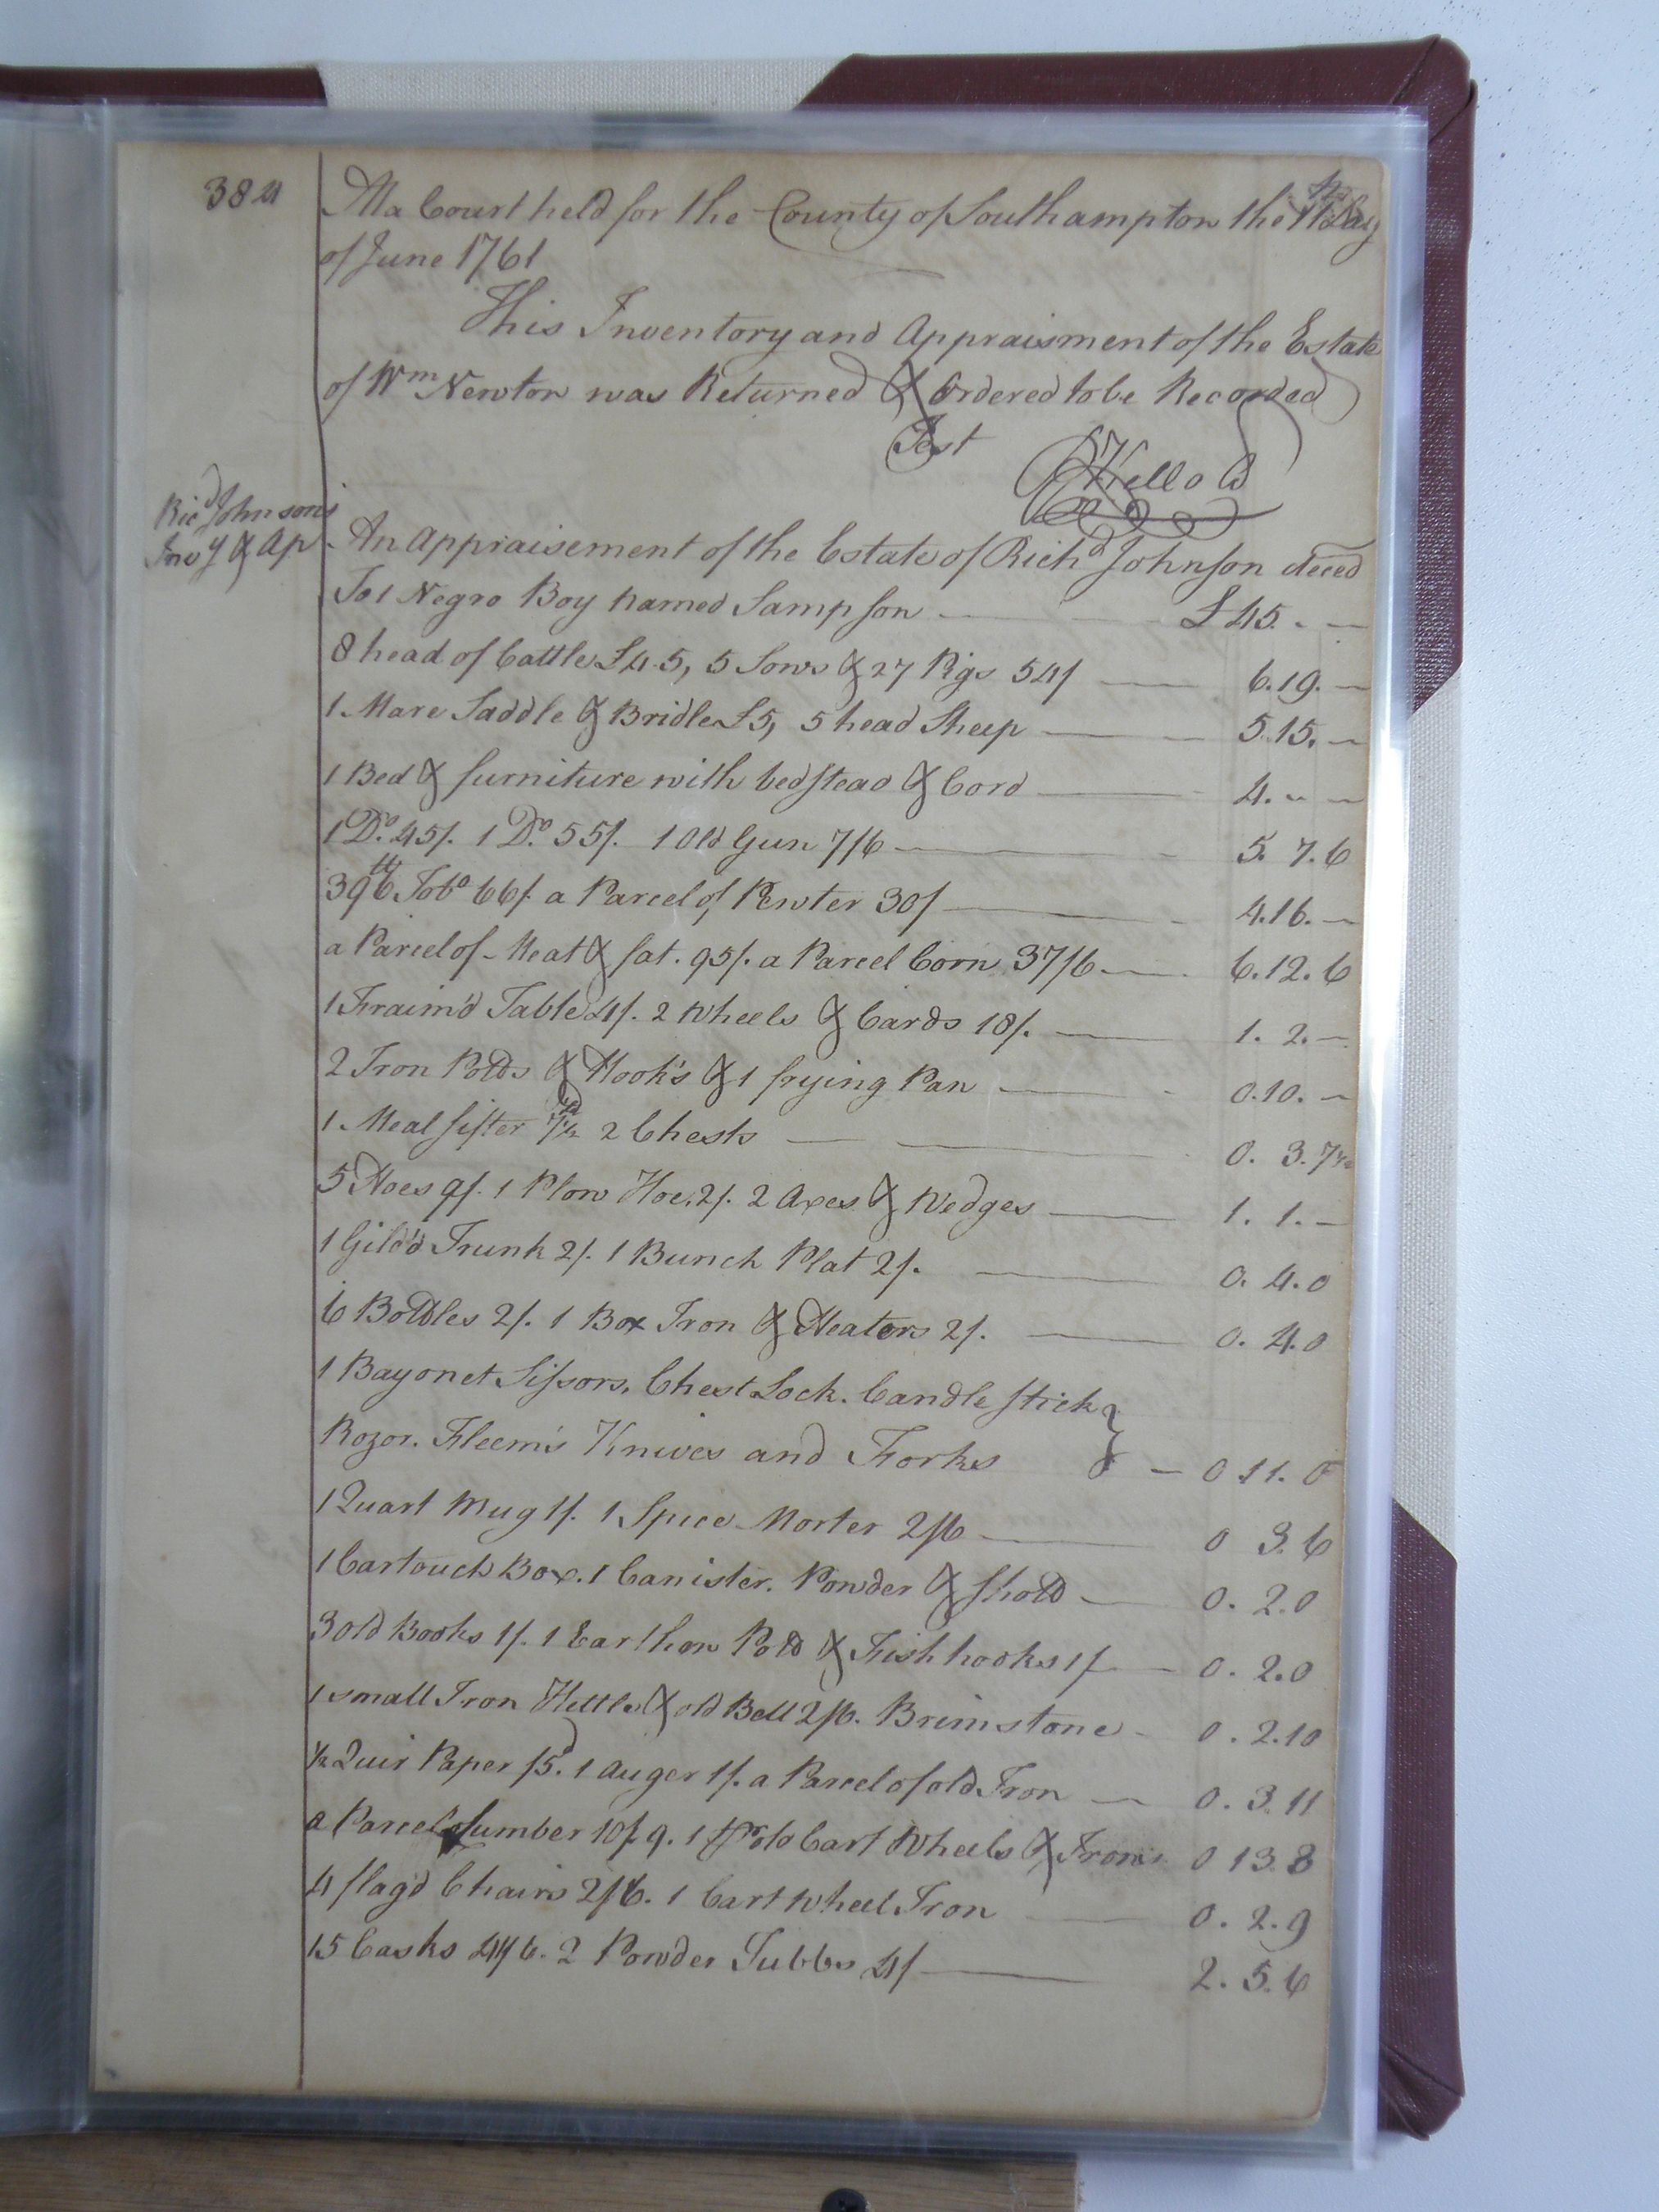 384
At a Court held for the County of Southampton the 11th Day
of June 1761
This Inventory and Appraisment of the Estate
of Wm Newton was Returned & Ordered to be Recorded
Test
Ricd Johnson's
Invy & Ap
An Appraisement of the Estate of Richd Johnson deced
To 1 Negro Boy named Sampson £45. - -
8 head of Cattle £4.5, 5 Sows & 27 Pigs 54/ 6.19. -
1 Mare Saddle & Bridle £5, 5 head Sheep 5.15. -
1 Bed & furniture with bedstead & Cord 4. - -
1 Do. 45/. 1 Do. 55/. 1 Old Gun 7/6 5. 7. 6
396 lb Tobo 66/. a Parcel of Pewter 30/ 4.16. -
a Parcel of Meat & fat. 95/. a Parcel Corn 37/6 6.12. 6
1 Fraim'd Table 4/. 2 Wheels & Cards 18/. 1. 2. -
2 Iron Potts & Hook's & 1 frying Pan 0.10. -
1 Meal sifter 7d½ 2 Chests 0. 3. 7½
5 Hoes 9/. 1 Plow Hoe. 2/. 2 Axes & Wedges 1. 1. -
1 Gild'd Trunk 2/. 1 Bunch Plat 2/. 0. 4. 0
6 Bottles 2/. 1 Box Iron & Heaters 2/. 0. 4. 0
1 Bayonet Sissors, Chest Lock. Candle stick }
Rozor. Fleem's Knives and Forks } 0 11. 0
1 Quart Mug 1/. 1 Spice Morter 2/6 0 3. 6
1 Cartouch Box. 1 Canister. Powder & shott 0. 2. 0
3 old Books 1/. 1 Earthen Pott & Fish hooks 1/ 0. 2. 0
1 small Iron Kettle & old Bell 2/6. Brimstone 0. 2. 10
½ Quir Paper /5d. 1 Auger 1/. a Parcel of old Iron 0. 3. 11
a Parcel Lumber 10/9. 1 pr old Cart Wheels & Irons 0 13. 8
4 flag'd Chairs 2/6. 1 Cart Wheel Iron 0. 2. 9
15 Casks 41/6. 2 Powder Tubbs 4/ 2. 5. 6